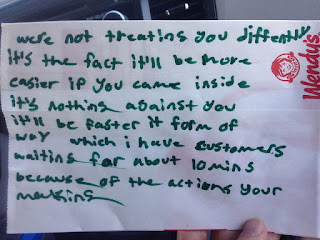 were not treating you diffently
it's the fact it'll be more
easier if you came inside
it's nothing against you
it'll be faster it form of
way which i have customers
waiting for about 10 mins
because of the actions your
making
Wendy's